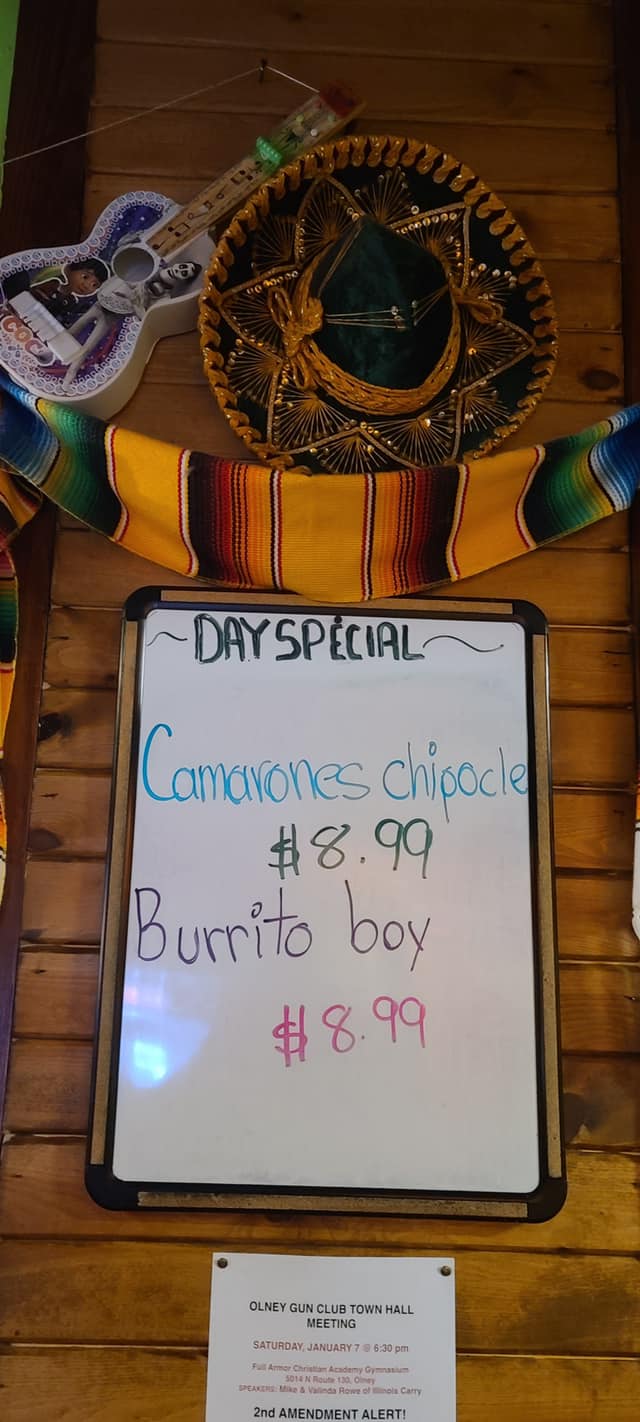 COCO
DAY SPECIAL
Camarones chipocle
$8.99
Burrito boy
$8.99
OLNEY GUN CLUB TOWN HALL
MEETING
SATURDAY, JANUARY 7 @ 6:30 pm
Full Armor Christian Academy Gymnasium
5014 N Route 130, Olney
SPEAKERS: Mike & Valinda Rowe of Illinois Carry
2nd AMENDMENT ALERT!